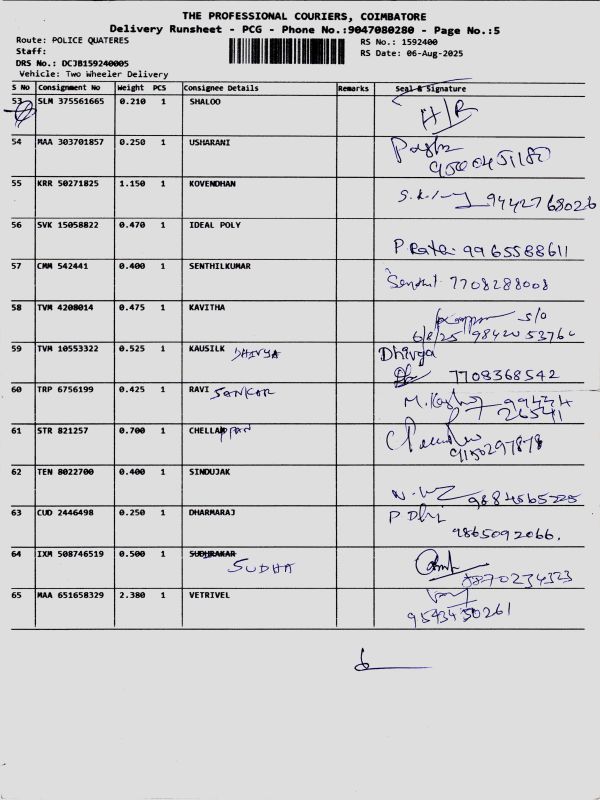 THE PROFESSIONAL COURIERS, COIMBATORE
Delivery Runsheet - PCG - Phone No.:9047080280 - Page No.:5
Route: POLICE QUATERES
RS No.: 1592400
Staff:
RS Date: 06-Aug-2025
DRS No.: DCJB159240005
Vehicle: Two Wheeler Delivery
S No Consignment No Weight PCS Consignee Details Remarks Seal & Signature
53 SLM 375561665 0.210 1 SHALOO H/R
54 MAA 303701857 0.250 1 USHARANI
55 KRR 50271825 1.150 1 KOVENDHAN 9442768026
56 SVK 15058822 0.470 1 IDEAL POLY 9965588611
57 CMM 542441 0.400 1 SENTHILKUMAR 7708288008
58 TVM 4208014 0.475 1 KAVITHA S/O
6/8/25
59 TVM 10553322 0.525 1 KAUSILK DHIVYA Dhivya
7708368542
60 TRP 6756199 0.425 1 RAVI SANKAR
26541
61 STR 821257 0.700 1 CHELLAPPAN
9150297878
62 TEN 8022700 0.400 1 SINDUJAK
63 CUD 2446498 0.250 1 DHARMARAJ
9865092066.
64 IXM 508746519 0.500 1 SUDHRAKAR
SUDHA
65 MAA 651658329 2.380 1 VETRIVEL
9543450261